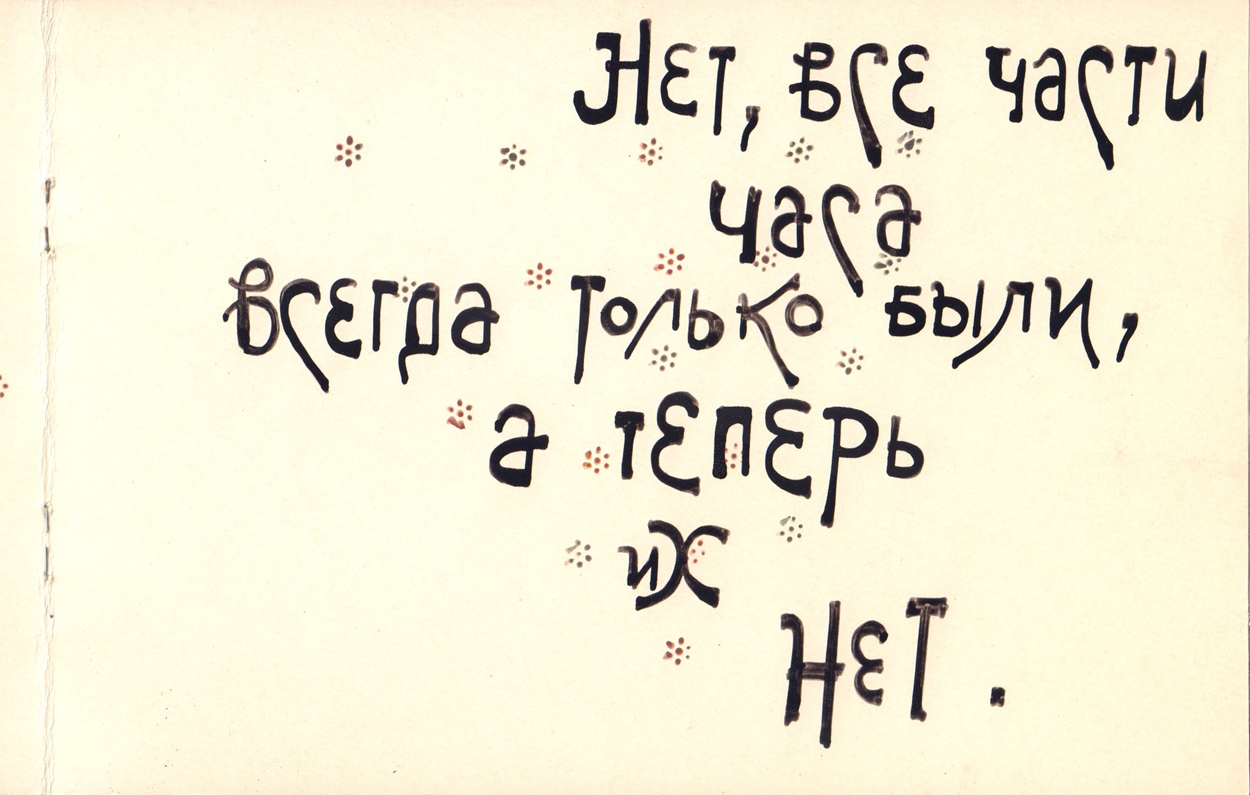 Нет, все части
часа
всегда только были,
а теперь
их
нет.